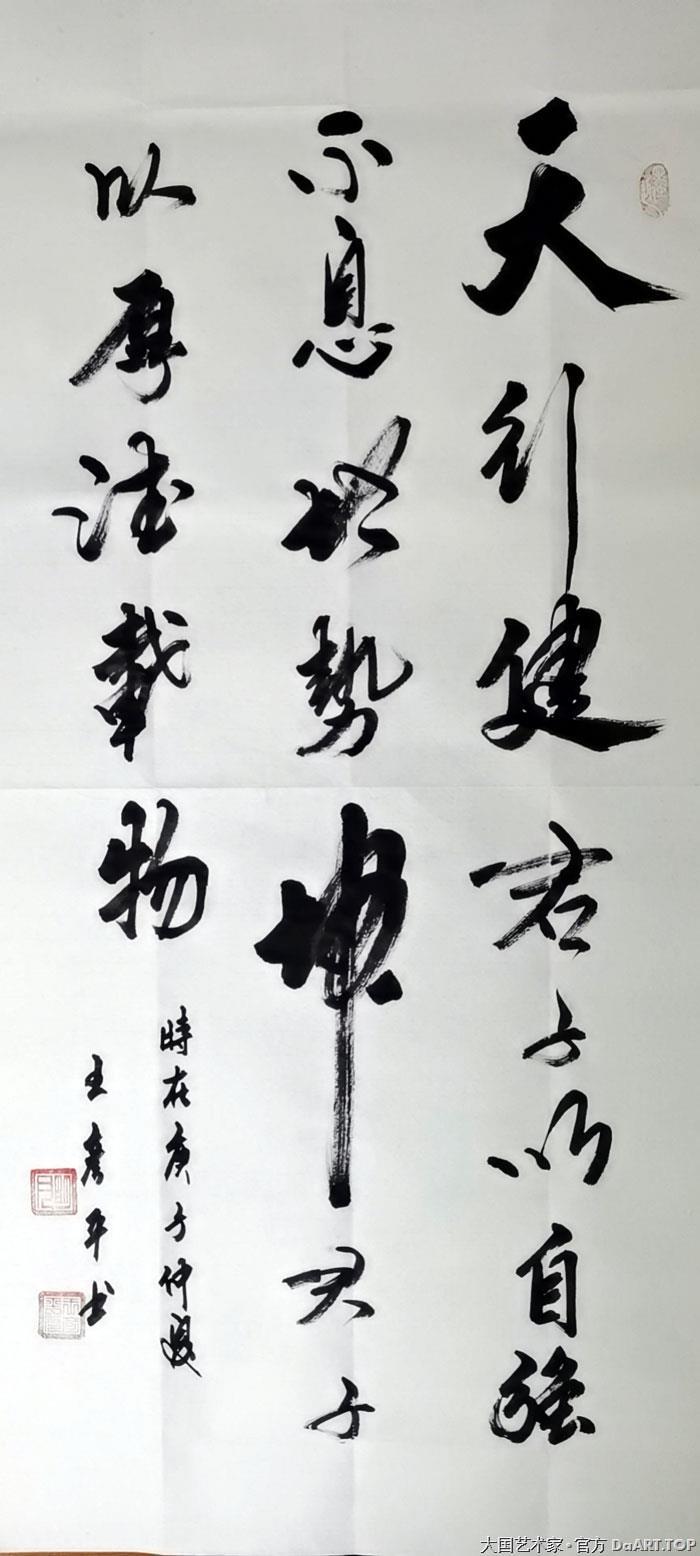 天行健君子以自強
不息地勢坤君子
以厚德載物
時在庚子仲夏
王彦平书
大国艺术家·官方 DaART.TOP